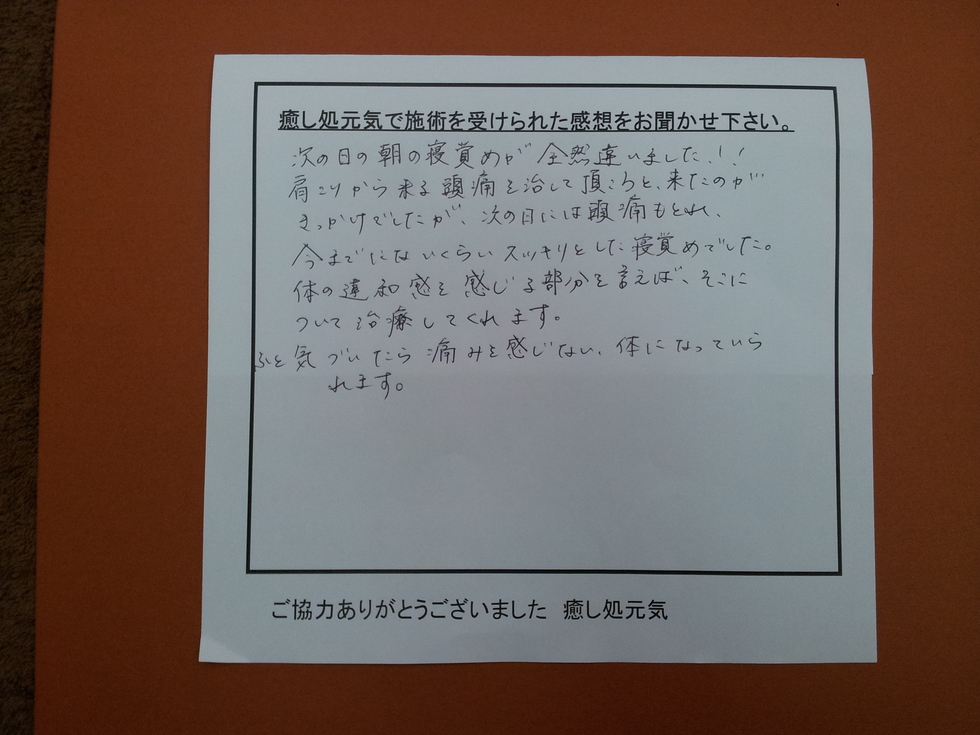 癒し処元気で施術を受けられた感想をお聞かせ下さい。
次の日の朝の寝覚めが全然違いました!!
肩こりから来る頭痛を治して頂こうと、来たのが
きっかけでしたが、次の日には頭痛もとれ、
今までにないくらいスッキリとした寝覚めでした。
体の違和感を感じる部分を言えば、そこに
ついて治療してくれます。
ふと気づいたら痛みを感じない、体になっていら
れます。
ご協力ありがとうございました 癒し処元気